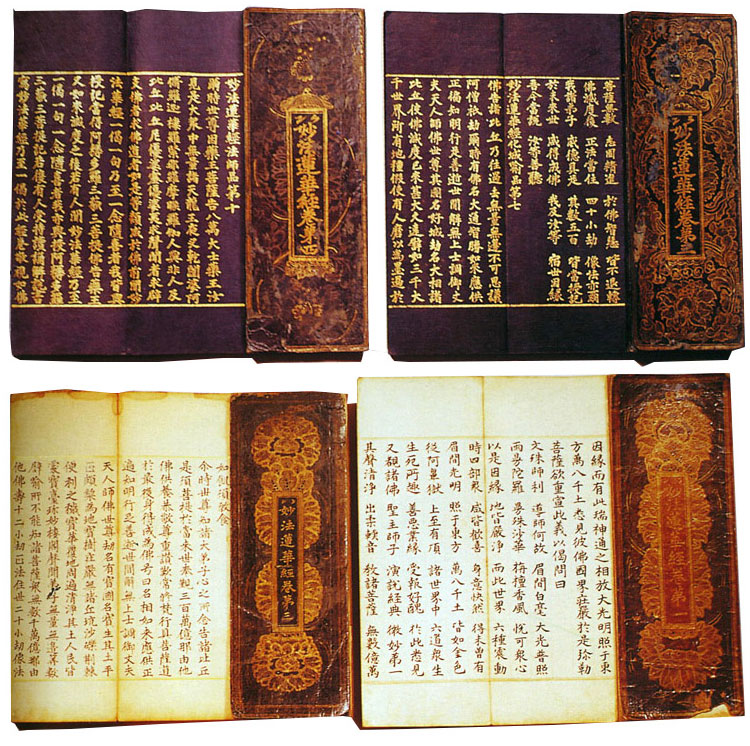 妙法蓮華經卷第四
妙法蓮華經法師品第十
爾時世尊因藥王菩薩告八萬大士藥王汝
見是大衆中無量諸天龍王夜叉乾闥婆阿
脩羅迦樓羅緊那羅摩睺羅伽人與非人及
比丘比丘尼優婆塞優婆夷求聲聞者求辟
支佛者求佛道者如是等類咸於佛前聞妙
法華經一偈一句乃至一念隨喜者我皆與
授記當得阿耨多羅三藐三菩提佛告藥王
又如來滅度之後若有人聞妙法華經乃至
一偈一句一念隨喜者我亦與授阿耨多羅
三藐三菩提記若復有人受持讀誦解說書
寫妙法華經乃至一偈於此經卷敬視如佛
妙法蓮華經卷第三
菩薩無數 志固精進 於佛智慧 皆不退轉
佛滅度後 正法當住 四十小劫 像法亦爾
我諸弟子 威德具足 其數五百 皆當授記
於未來世 咸得成佛 我及汝等 宿世因緣
吾今當說 汝等善聽
妙法蓮華經化城喻品第七
佛告諸比丘乃往過去無量無邊不可思議
阿僧祇劫爾時有佛名大通智勝如來應供
正徧知明行足善逝世間解無上士調御丈
夫天人師佛世尊其國名好城劫名大相諸
比丘彼佛滅度已來甚大久遠譬如三千大
千世界所有地種假使有人磨以為墨過於
妙法蓮華經卷第三
如飢須教食
尒時世尊知諸大弟子心之所念告諸比丘
是須菩提於當來世奉覲三百萬億那由他
佛供養恭敬尊重讚歎常修梵行具菩薩道
於最後身得成為佛号曰名相如來應供正
遍知明行足善逝世間解無上士調御丈夫
天人師佛世尊劫名有寶國名寶生其土平
正頗梨為地寶樹莊嚴無諸丘坑沙礫荊棘
便利之穢寶華覆地周遍清淨其土人民皆
處寶臺珍妙樓閣聲聞弟子無量無邊筭數
譬喻所不能知諸菩薩衆無數千萬億那由
他佛壽十二小劫正法住世二十小劫像法
華經
第
因緣而有此瑞神通之相放大光明照于東
方萬八千土悉見彼佛國界莊嚴於是弥勒
菩薩欲重宣此義以偈問曰
文殊師利 導師何故 眉間白毫 大光普照
雨曼陀羅 曼殊沙華 栴檀香風 悅可衆心
以是因緣 地皆嚴淨 而此世界 六種震動
時四部衆 咸皆歡喜 身意快然 得未曾有
眉間光明 照于東方 萬八千土 皆如金色
從阿鼻獄 上至有頂 諸世界中 六道衆生
生死所趣 善惡業緣 受報好醜 於此悉見
又覩諸佛 聖主師子 演說經典 微妙第一
其聲清淨 出柔軟音 教諸菩薩 無數億萬